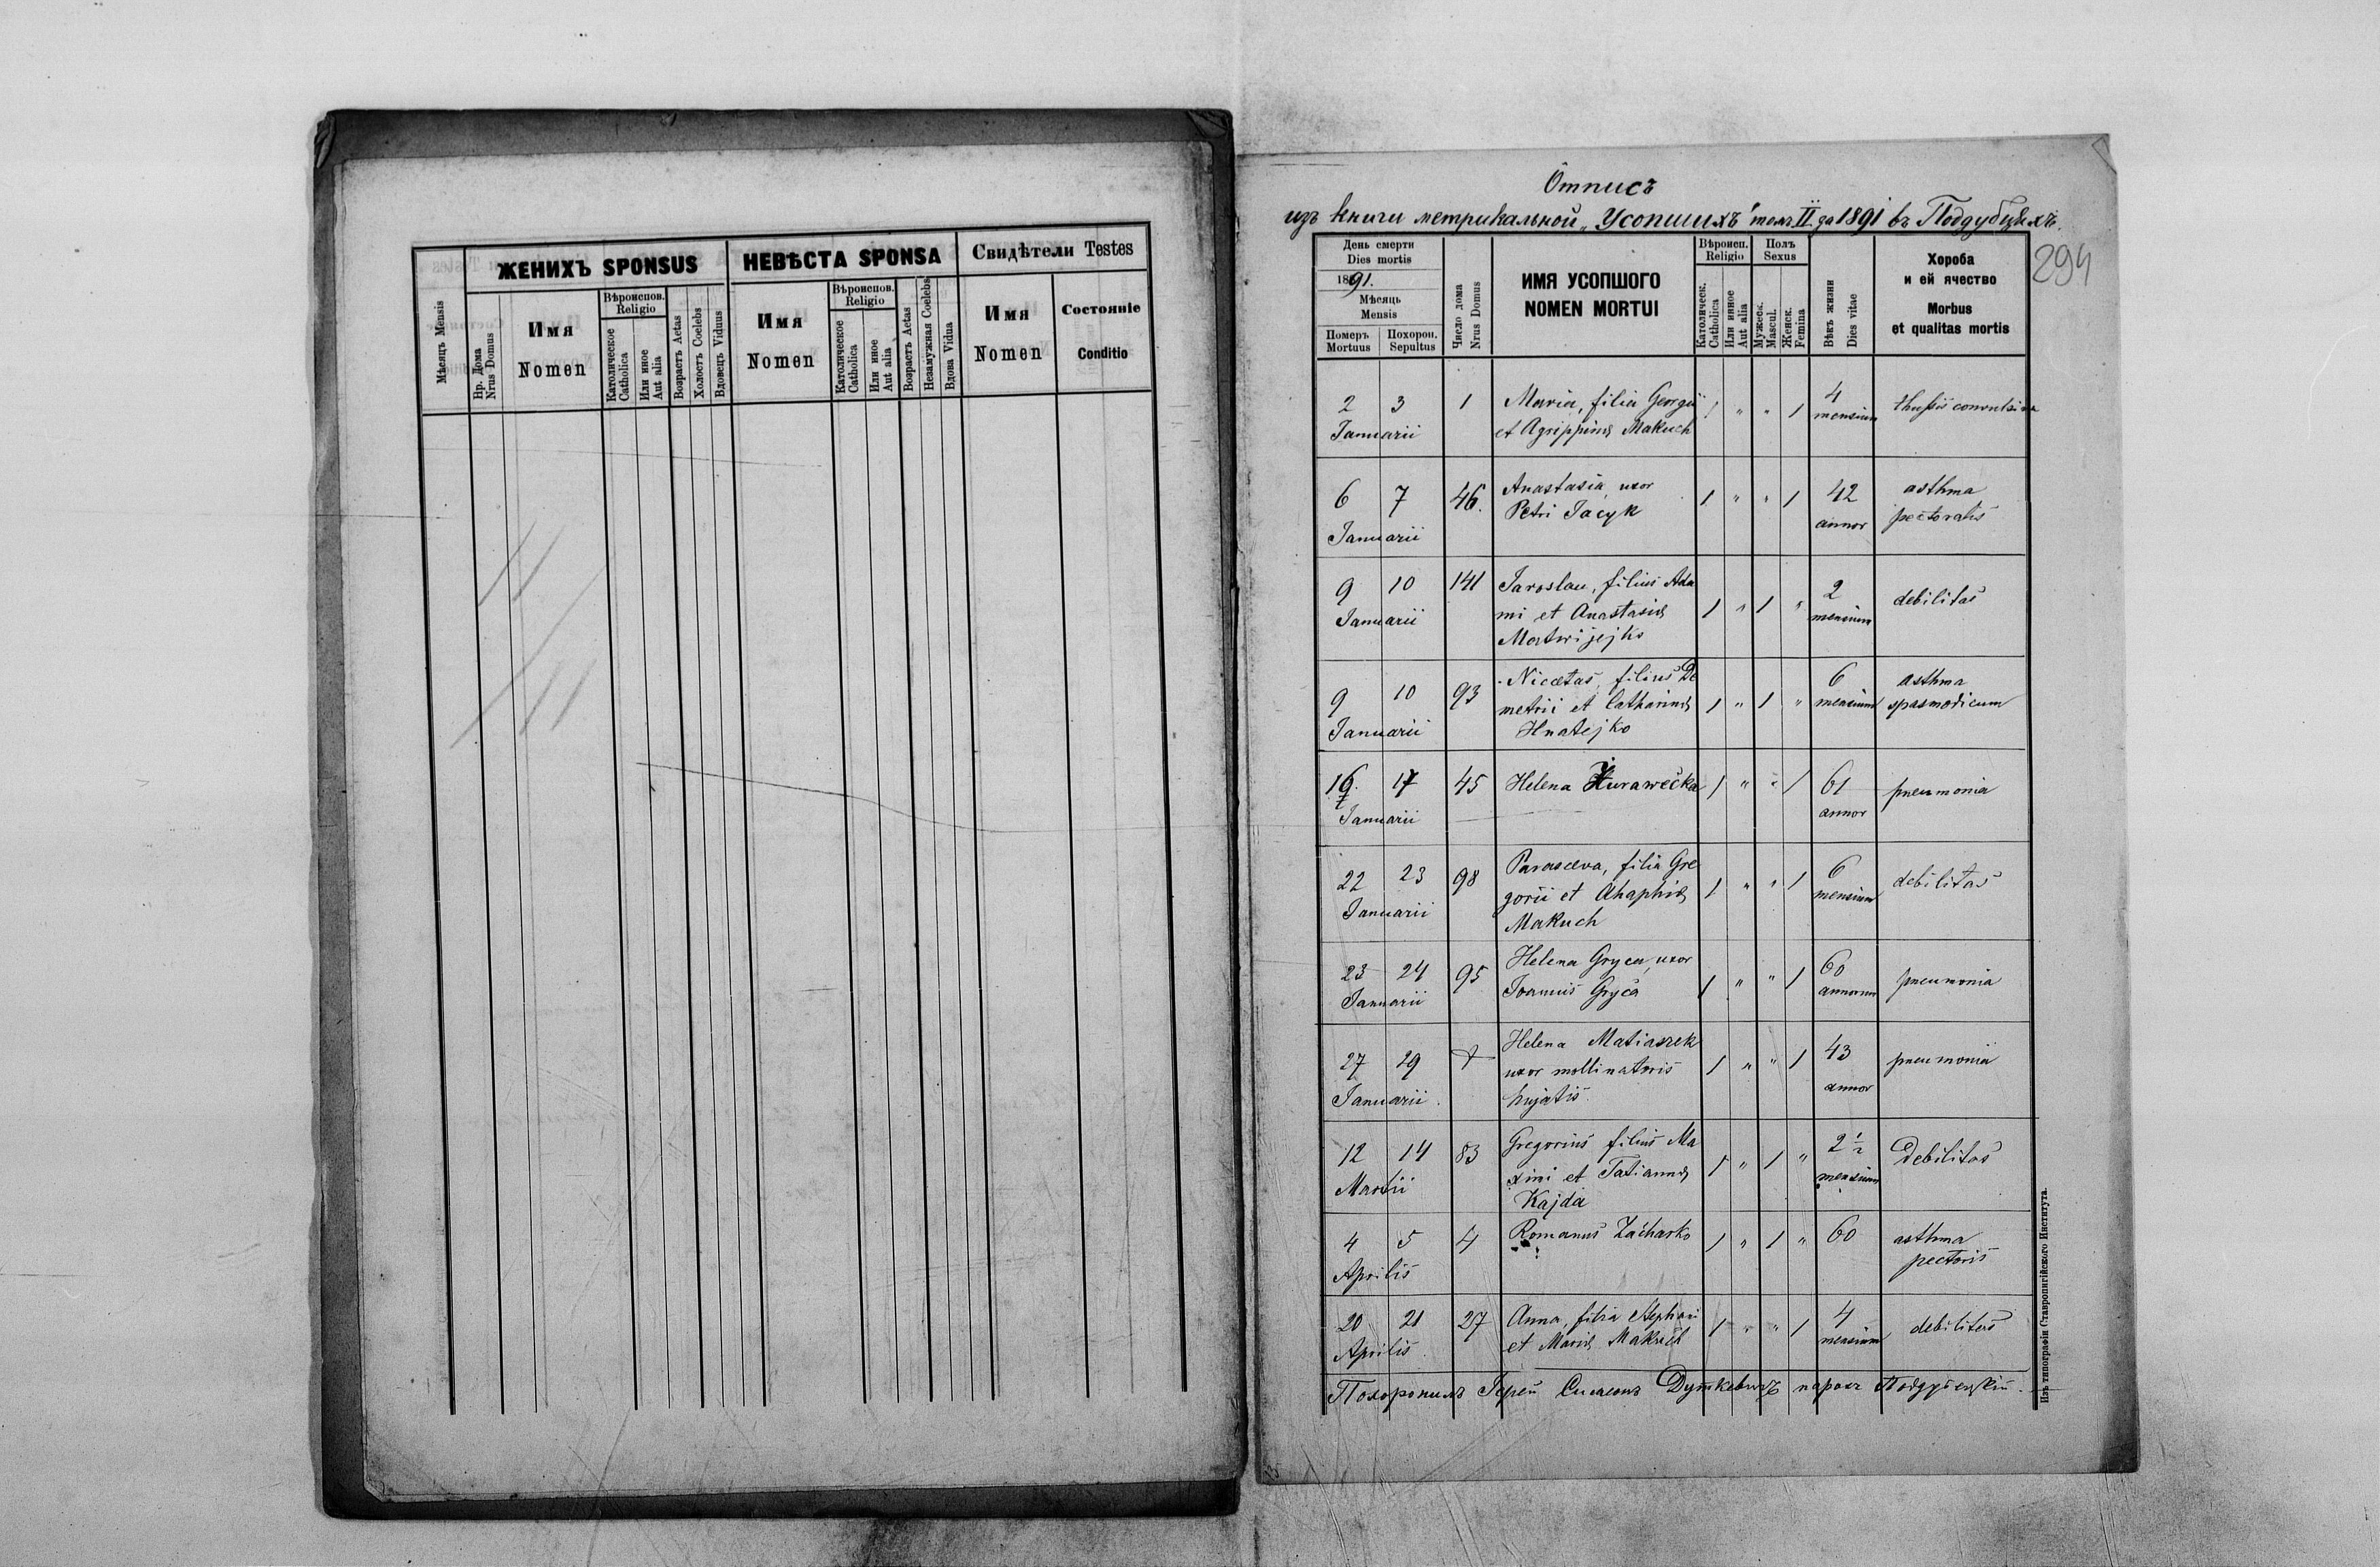 ЖЕНИХЪ SPONSUS
НЕВѢСТА SPONSA
Свидѣтели Testes
Мѣсяцъ Mensis
Нр. Дома
Nrus Domus
Имя
Nomen
Вѣроиспов.
Religio
Католическое
Catholica
Или иное
Aut alia
Возрастъ Aetas
Холостъ Coelebs
Вдовецъ Viduus
Имя
Nomen
Вѣроиспов.
Religio
Католическое
Catholica
Или иное
Aut alia
Возрастъ Aetas
Незамужная Coelebs
Вдова Vidua
Имя
Nomen
Состояніе
Conditio
Отписъ
изъ книги метрикальной „Усопшихъ" томъ II. за 1891 въ Поддубцѣхъ.
294
День смерти
Dies mortis
1891.
Мѣсяць
Mensis
Померъ
Mortuus
Похорон.
Sepultus
Число дома
Nrus Domus
ИМЯ УСОПШОГО
NOMEN MORTUI
Вѣроисп.
Religio
Католическ.
Catholica
Или инное
Aut alia
Полъ
Sexus
Мужеск.
Mascul.
Женск.
Femina
Вѣкъ жизни
Dies vitae
Хороба
и ей ячество
Morbus
et qualitas mortis
2 3 1 Maria, filia Georgii 1 " " 1 4
Januarii et Agrippinæ Makuch mensium
6 7 46. Anastasia, uxor 1 " " 1 42 asthma
Januarii Petri Jacyk annor pectoralis
9 10 141 Jaroslau, filius Ada 1 " 1 " 2 debilitas
Januarii mi et Anastasiæ mensium
Matwijejko
9 10 93 Nicetas, filius De 1 " 1 " 6 asthma
Januarii metrii et Catharinæ mensium spasmodicum
Hnatejko
16 17 45 Helena Żurawečka 1 " " 1 61 pneumonia
Januarii annor
22 23 98 Parasceva, filia Gre 1 " " 1 6 debilitas
Januarii gorii et Ahaphiæ mensium
Makuch
23 24 95 Helena Gryca, uxor 1 " " 1 60 pneumonia
Januarii Joannis Gryca annorum
27 29 Helena Matiaszek 1 " " 1 43 pneumonia
Januarii uxor mollinatoris annor
hujatis
12 14 83 Gregorius filius Ma 1 " 1 " 2 1/2 Debilitas
Martii ximi et Tatiannæ mensium
Kajda
4 5 4 Romanus Zacharko 1 " 1 " 60 asthma
Aprilis pectoris
20 21 27 Anna, filia Stephani 1 " " 1 4 debilitas
Aprilis et Mariæ Makuch mensium
Похоронилъ Іерей Симеонъ Дуткевичъ парохъ Поддубецкій.
Изъ типографіи Ставропигійского Института.